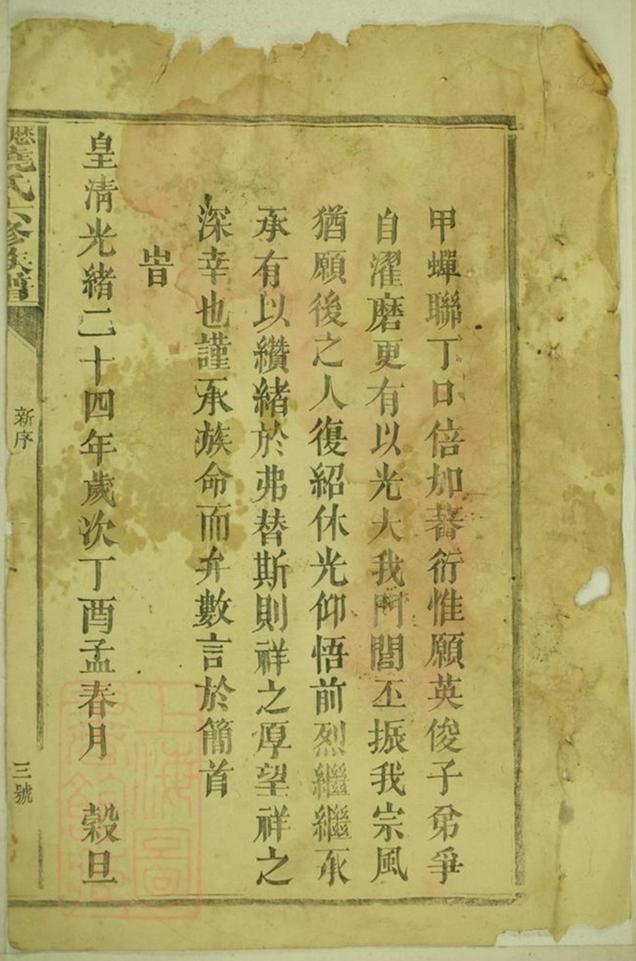 甲蟬聯丁口倍加蕃衍惟願英俊子弟爭
自濯磨更有以光大我門閭丕振我宗風
猶願後之人復紹休光仰悟前烈繼繼承
承有以纘緒於弗替斯則祥之厚望祥之
深幸也謹承族命而弁數言於簡首
旹
皇清光緒二十四年歲次丁酉孟春月 穀旦
氏六修族譜
新序
三號
上海圖